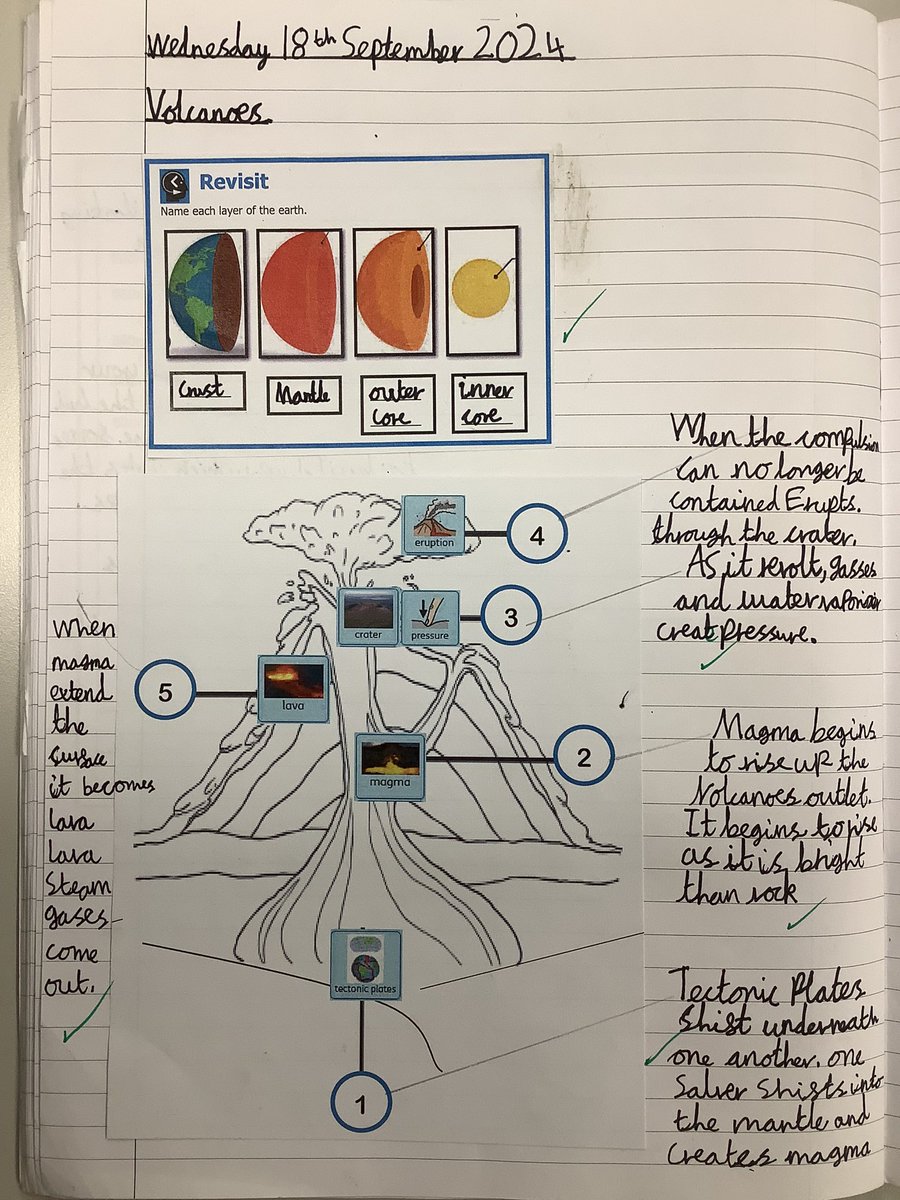 Wednesday 18th September 2024
Volcanoes
Revisit
Name each layer of the earth.
Crust
Mantle
outer
core
inner
core
eruption
4
crater
pressure
3
5
lava
magma
2
tectonic plates
1
When the compulsion
can no longer be
contained Erupts.
through the crater.
As it revolt, gasses
and water
creat pressure.
Magma begins
to rise up the
Volcanoes outlet.
It begins to rise
as it is bright
than rock
Tectonic Plates
Shist underneath
one another. one
Salver Shists into
the mantle and
creates magma
When
magma
extend
the
surface
it becomes
lava
lava
Steam
gases
come
out.